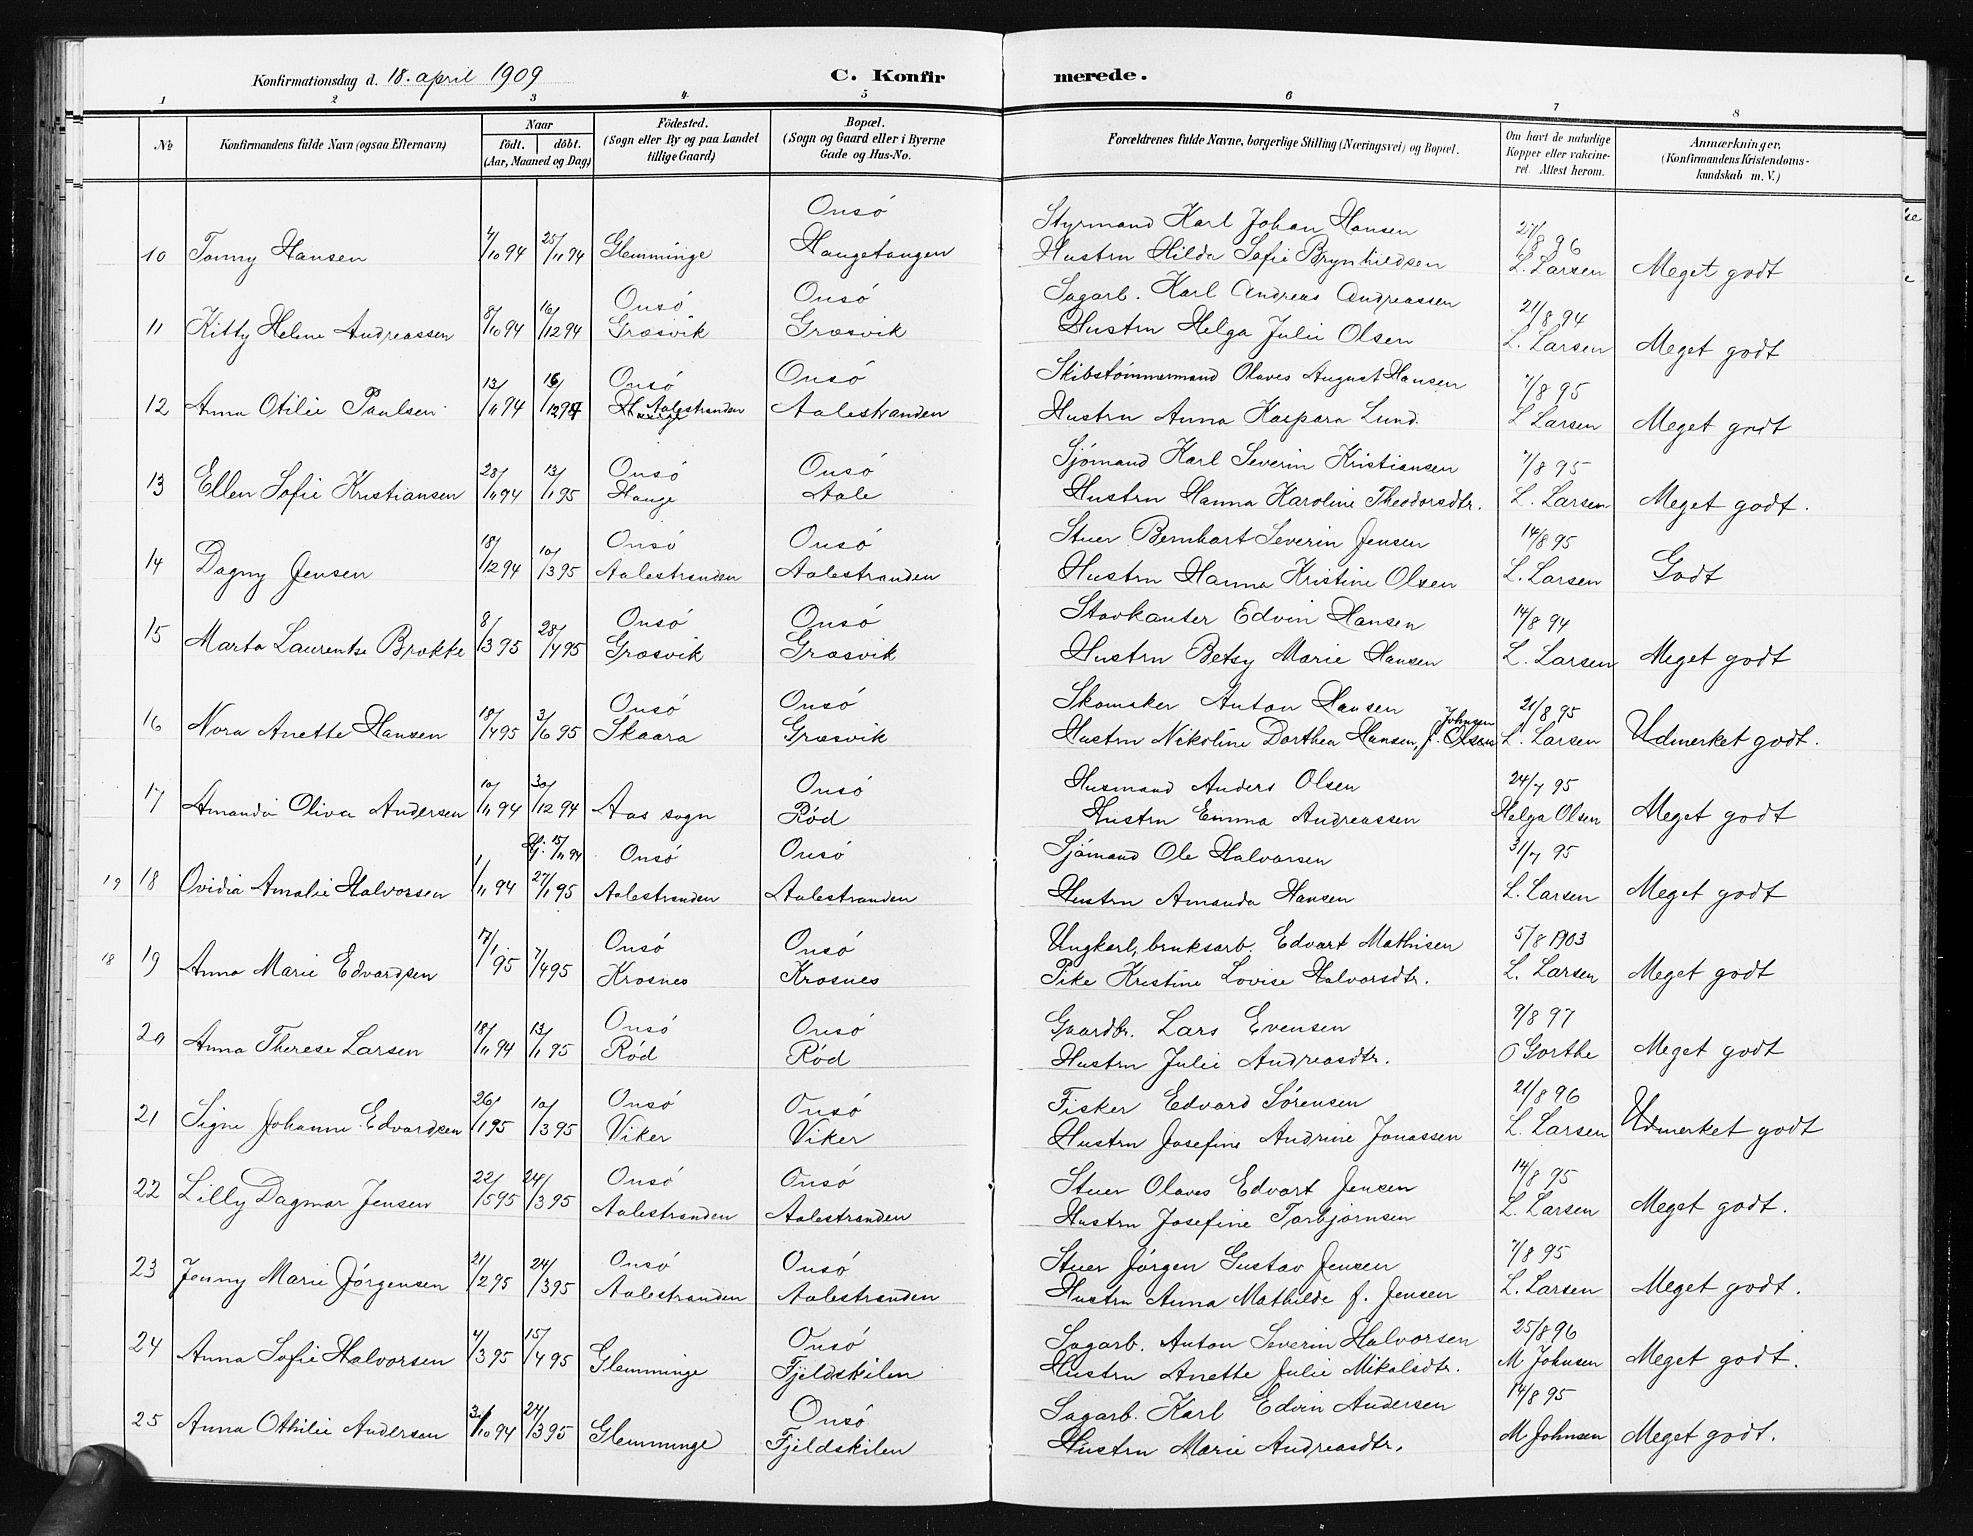 Konfirmationsdag d. 18. april 1909
C. Konfirmerede.
1 2 3 4 5 6 7 8
No
Konfirmandens fulde Navn (ogsaa Efternavn)
Naar
födt. döbt.
(Aar, Maaned og Dag)
Födested.
(Sogn eller By og paa Landet
tillige Gaard)
Bopæl.
(Sogn og Gaard eller i Byerne
Gade og Hus-No.
Forældrenes fulde Navne, borgerlige Stilling (Næringsvei) og Bopæl.
Om havt de naturlige
Kopper eller vakcine-
ret. Attest herom.
Anmærkninger.
(Konfirmandens Kristendoms-
kundskab m. V.)
Onsö Styrmand Karl Johan Hansen 27/8 96
10 Tonny Hansen 4/10 94 25/11 94 Glemminge Haugetangen Hustru Hilda Sofie Brynhildsen L. Larsen Meget godt
Onsö Onsö Sagarb. Karl Andreas Andreassen 21/8 94
11 Kitty Helene Andreassen 8/10 94 10/12 94 Græsvik Græsvik Hustru Helga Julie Olsen L. Larsen Meget godt
Onsö Onsö Skibstømmermand Olaves August Hansen 7/8 95
12 Anna Otilie Paulsen 13/11 94 16/12 94 Hauge Aalestranden Aalestranden Hustru Anna Kaspara Lund. L Larsen Meget godt
Onsö Onsö Sjömand Karl Severin Kristiansen 7/8 95
13 Ellen Sofie Kristiansen 28/11 94 13/1 95 Hauge Aale Hustru Hanna Karoline Theodorsdtr. L. Larsen Meget godt.
Onsö Onsö Stuer Bernhart Severin Jensen 14/8 95
14 Dagny Jensen 18/12 94 10/3 95 Aalestranden Aalestranden Hustru Hanna Kristine Olsen L. Larsen Godt
Onsö Onsö Stavkanter Edvin Hansen 14/8 94
15 Marta Laurentse Brække 8/3 95 28/4 95 Græsvik Græsvik Hustru Betsy Marie Hansen L. Larsen Meget godt
Onsö Onsö Skomaker Anton Hansen 21/8 95
16 Nora Anette Hansen 18/4 95 3/6 95 Skaara Græsvik Hustru Nikoline Dorthea Hansen, f. Olsen Johnsen L. Larsen Udmerket godt.
Onsö Husmand Anders Olsen 24/7 95
17 Amanda Oliva Andersen 10/11 94 30/12 94 Aas sogn Rød Hustru Emma Andreassen Helga Olsen Meget godt
Hj: 15/11 94 Onsö Onsö Sjömand Ole Halvorsen 31/7 95
19 18 Ovidia Amalie Halvorsen 1/11 94 27/1 95 Aalestranden Aalestranden Hustru Amanda Hansen L. Larsen Meget godt
Onsö Onsö Ungkarl, bruksarb. Edvart Mathisen 5/8 1903
18 19 Anna Marie Edvardsen 17/1 95 7/4 95 Krosnes Krosnes Pike Kristine Lovise Halvorsdtr. L. Larsen Meget godt
Onsö Onsö Gaardbr. Lars Evensen 9/8 97
20 Anna Therese Larsen 18/11 94 13/1 95 Rød Rød Hustru Julie Andreasdtr. O Gorthe Meget godt
Onsö Onsö Fisker Edvard Sørensen 21/8 96
21 Signe Johanne Edvardsen 26/1 95 10/3 95 Viker Viker Hustru Josefine Andrine Jonassen L. Larsen Udmerket godt
Onsö Onsö Stuer Olaves Edvart Jensen 14/8 95
22 Lilly Dagmar Jensen 22/5 95 24/3 95 Aalestranden Aalestranden Hustru Josefine Torbjørnsen L. Larsen Meget godt.
Onsö Onsö Stuer Jørgen Gustav Jensen 7/8 95
23 Jenny Marie Jørgensen 21/2 95 24/3 95 Aalestranden Aalestranden Hustru Anna Mathilde f. Jensen L. Larsen Meget godt.
Onsö Sagarb. Anton Severin Halvorsen 25/8 96
24 Anna Sofie Halvorsen 4/3 95 15/4 95 Glemminge Fjeldskilen Hustru Anette Julie Mikalsdtr. M Johnsen Meget godt.
Onsö Sagarb. Karl Edvin Andersen 14/8 95
25 Anna Othilie Andersen 31/10 94 24/3 95 Glemminge Fjeldskilen Hustru Marie Andreasdtr. M Johnsen Meget godt.